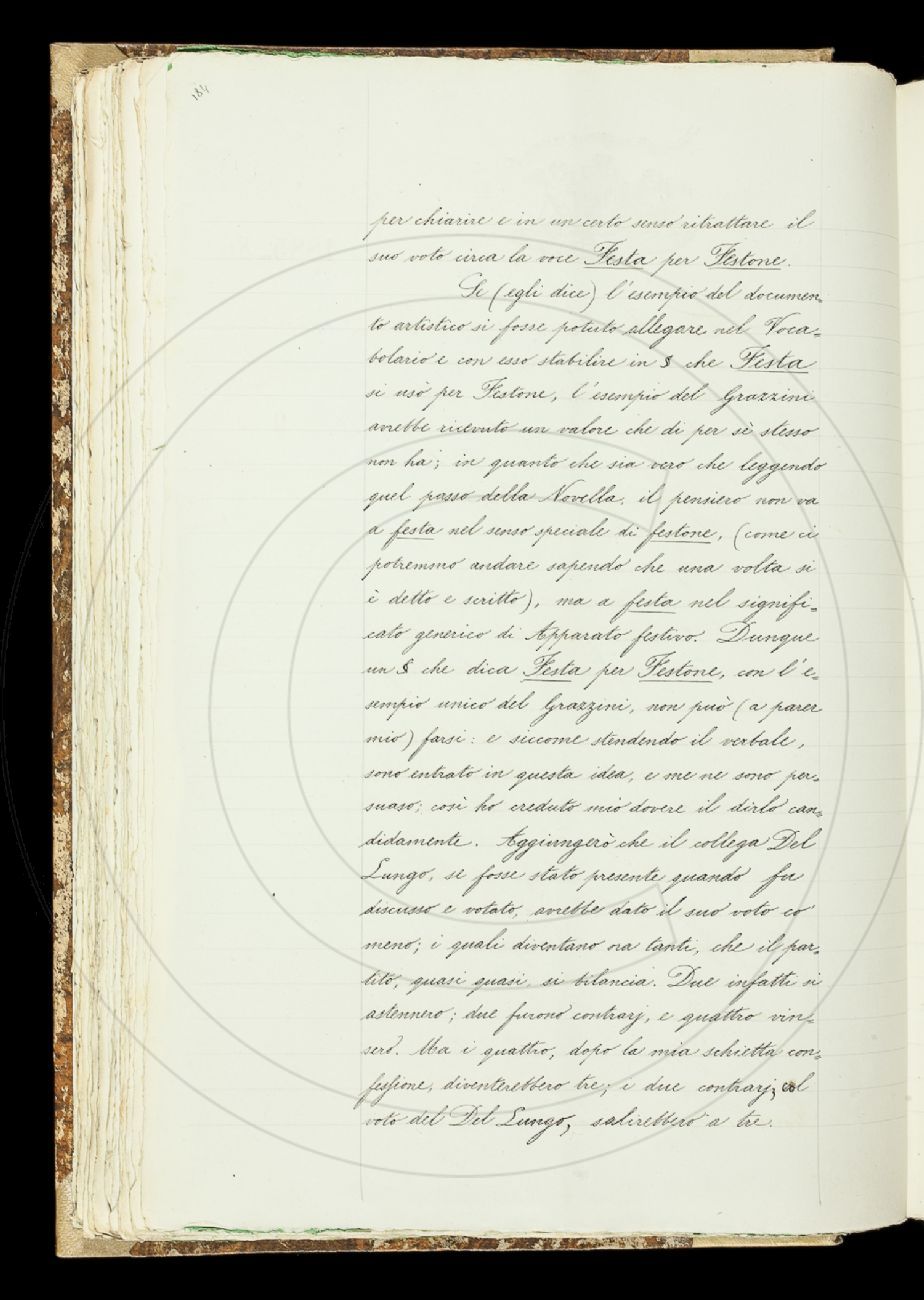 184
per chiarire e in un certo senso ritrattare il
suo voto circa la voce Festa per Festone.
Se (egli dice) l'esempio del documen=
to artistico si fosse potuto allegare nel Voca=
bolario e con esso stabilire in § che Festa
si usò per Festone, l'esempio del Grazzini
avrebbe ricevuto un valore che di per sè stesso
non ha; in quanto che sia vero che leggendo
quel passo della Novella, il pensiero non va
a festa nel senso speciale di festone, (come ci
potremmo andare sapendo che una volta si
è detto e scritto), ma a festa nel signifi=
cato generico di Apparato festivo. Dunque
un § che dica Festa per Festone, con l'e=
sempio unico del Grazzini, non può (a parer
mio) farsi: e siccome stendendo il verbale,
sono entrato in questa idea, e me ne sono per=
suaso; così ho creduto mio dovere il dirlo can=
didamente. Aggiungerò che il collega Del
Lungo, se fosse stato presente quando fu
discusso e votato, avrebbe dato il suo voto co'
meno; i quali diventano ora tanti, che il par=
tito, quasi quasi, si bilancia. Due infatti si
astennero; due furono contrarj, e quattro vin=
sero. Ma i quattro, dopo la mia schietta con=
fessione, diventerebbero tre; i due contrarj, col
voto del Del Lungo, salirebbero a tre.